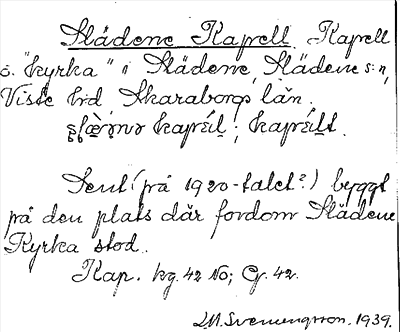 Slädene Kapell. Kapell
o. "kyrka" i Slädene, Slädene s:n,
Viste hrd Skaraborgs län.
kapräl
Sent (på 1920-talet?) byggt
på den plats där fordom Slädene
Kyrka stod.
Kap. kg. 42 No; G. 42.
Svenungsson. 1939.